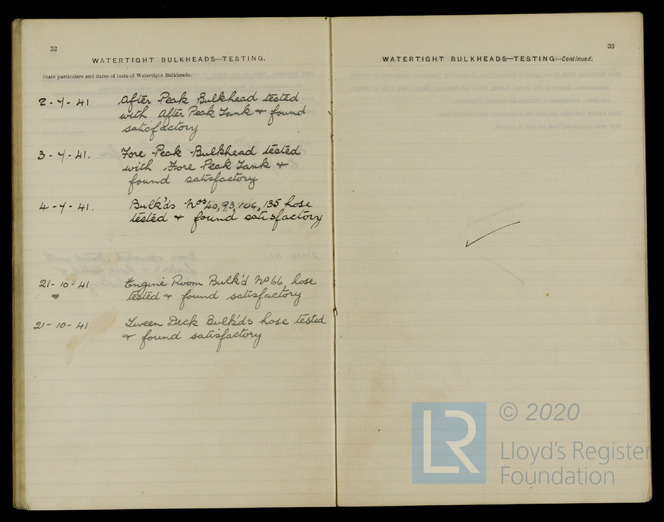 32
WATERTIGHT BULKHEADS—TESTING.
State particulars and dates of tests of Watertight Bulkheads.
2-4-41 After Peak Bulkhead tested
with After Peak Tank & found
satisfactory
3-4-41. Fore Peak Bulkhead tested
with Fore Peak Tank &
found satisfactory
4-4-41. Bulk'ds Nos 40, 93, 106, 135 hose
tested & found satisfactory
21-10-41 Engine Room Bulk'd No 66, hose
tested & found satisfactory
21-10-41 Tween Deck Bulk'ds hose tested
& found satisfactory
33
WATERTIGHT BULKHEADS—TESTING—Continued.
LR © 2020
Lloyd's Register
Foundation